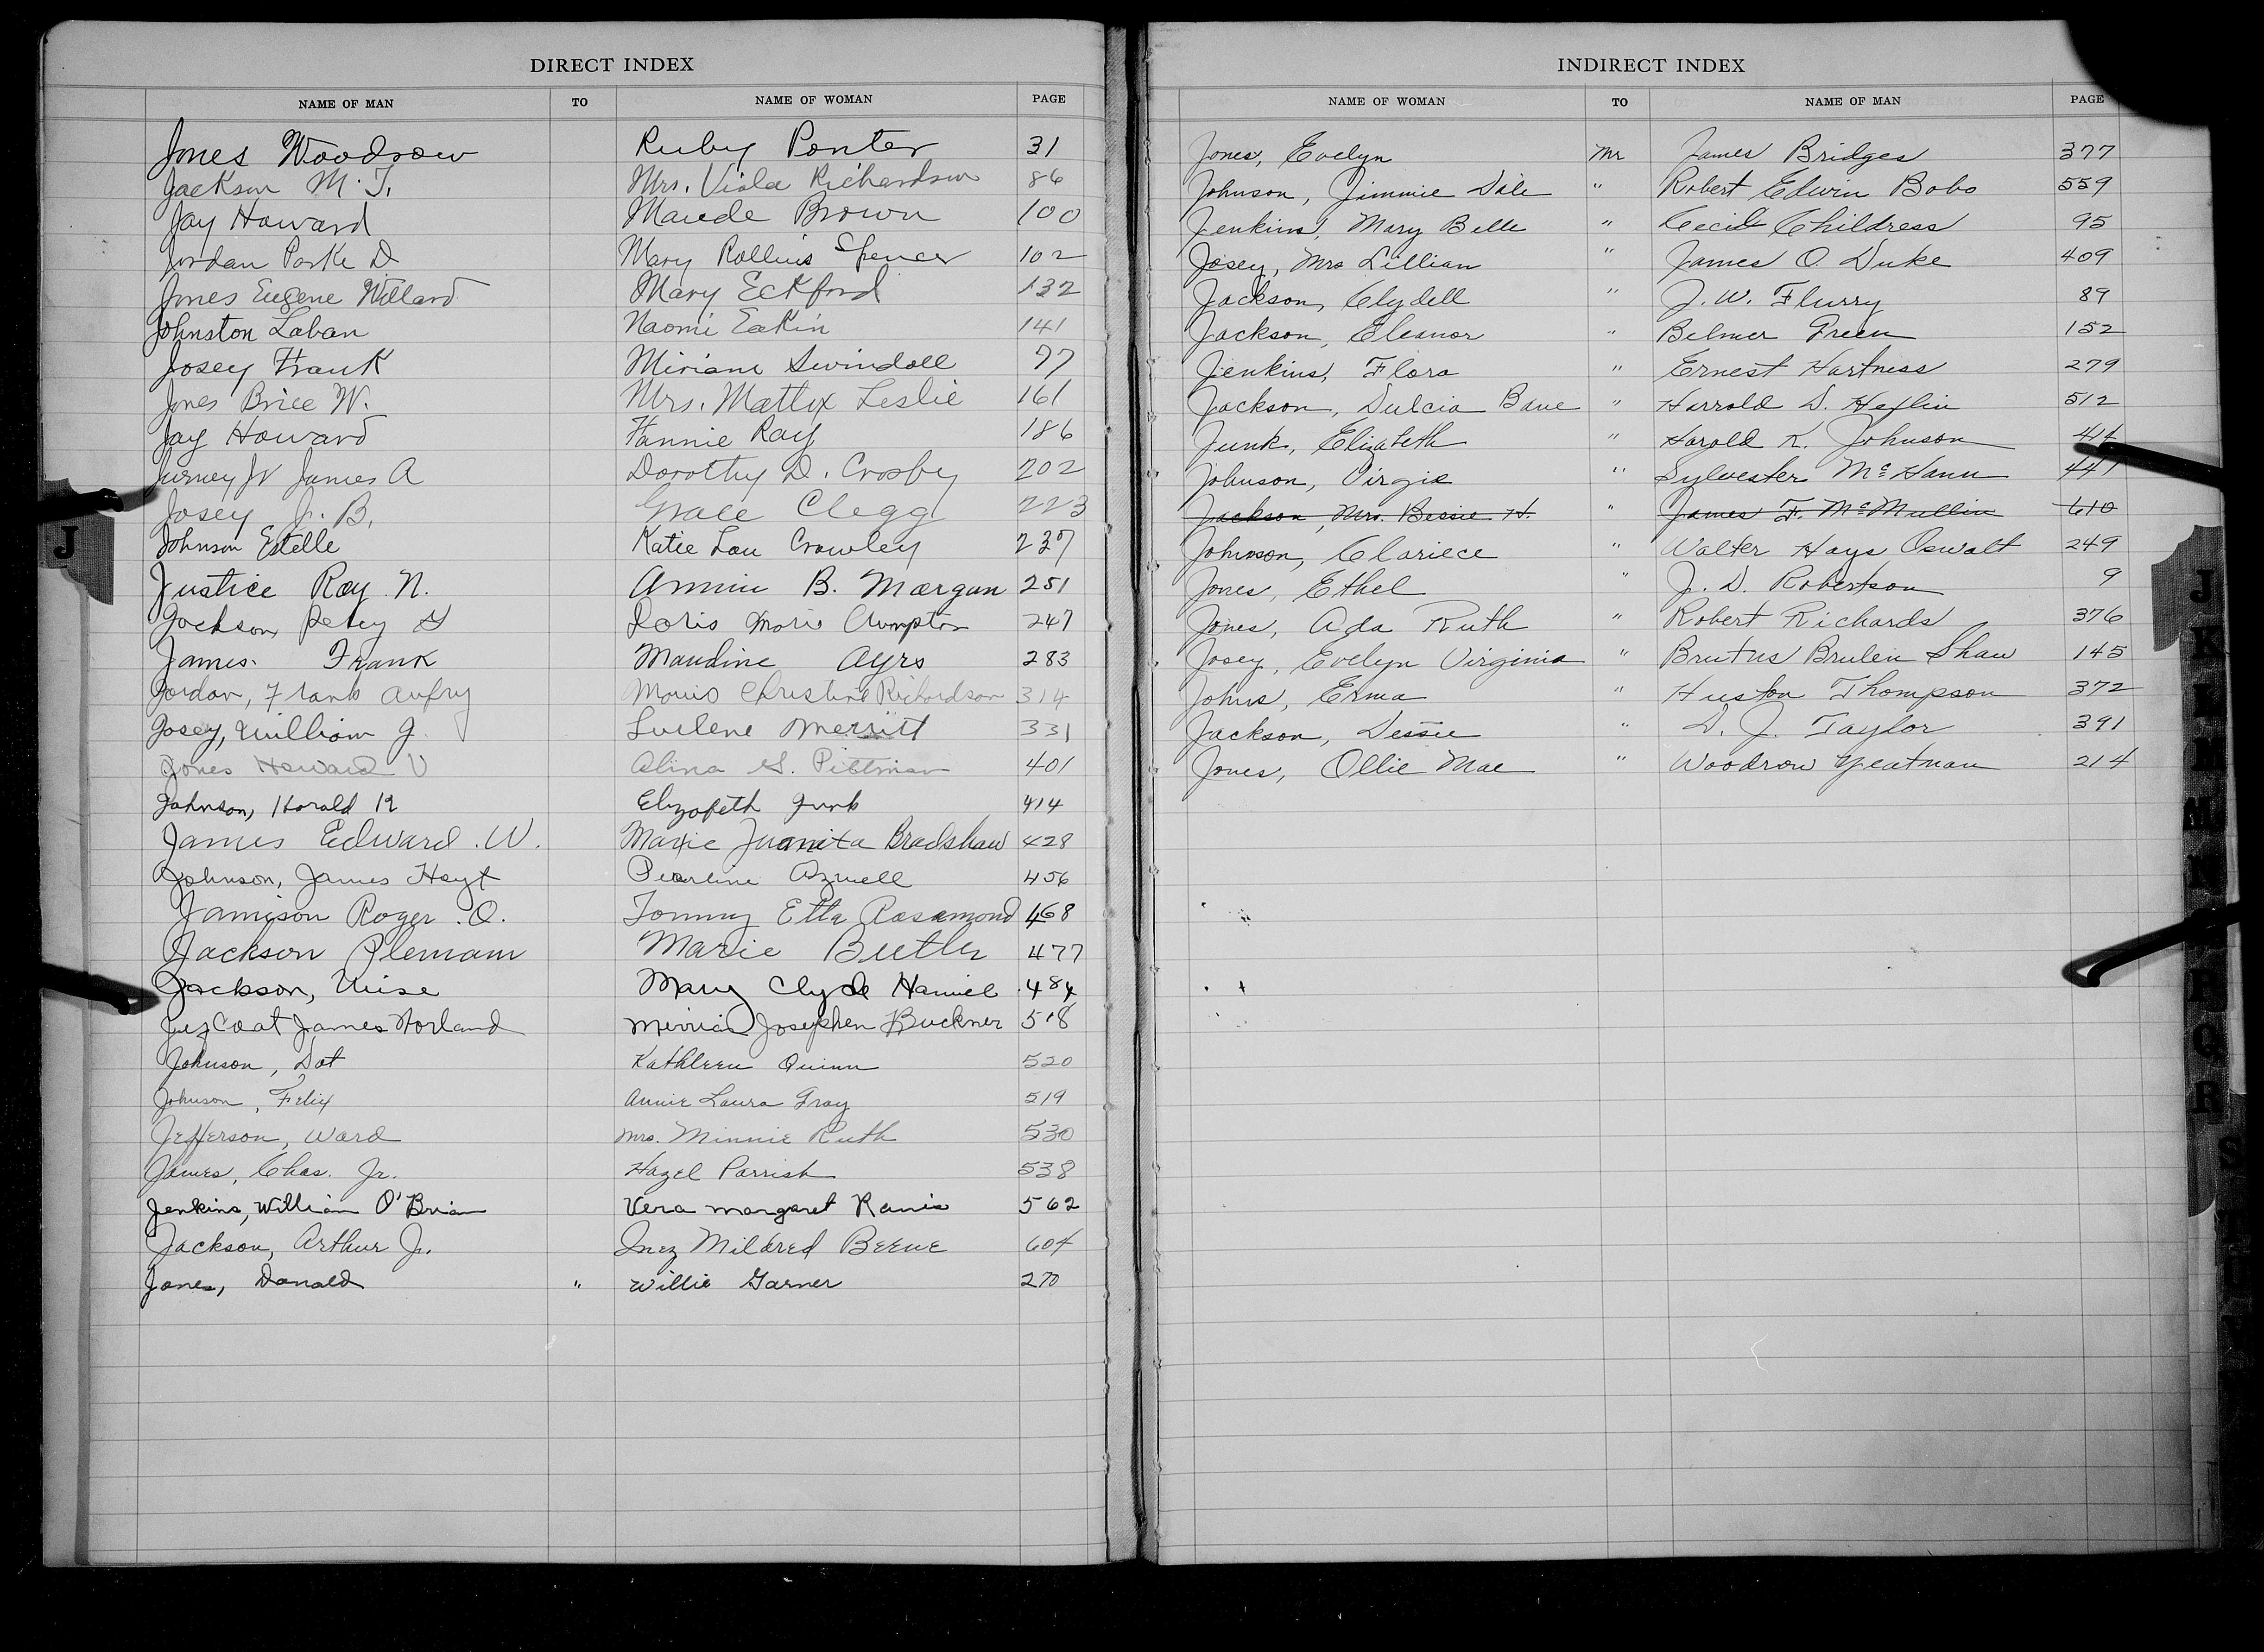 DIRECT INDEX
NAME OF MAN TO NAME OF WOMAN PAGE
Jones Woodrow Ruby Ponter 31
Jackson M. T. Mrs. Viola Richardson 86
Jay Howard Maude Brown 100
Jordan Parke D Mary Rollins Spencer 102
Jones Eugene Willard Mary Eckford 132
Johnston Laban Naomi Eakin 141
Josey Frank Miriam Swindoll 77
Jones Brice W. Mrs. Mattox Leslie 161
Jay Howard Fannie Ray 186
Jurney Jr James A Dorothy D. Crosby 202
Josey J. B. Grace Clegg 223
Johnson Estelle Katie Lou Crowley 237
Justice Roy N. Annie B. Morgan 251
Jackson Percy G Doris Marie Crumpton 247
James. Frank Maudine Ayrs 283
Jordan, Frank Aufry Christine Richardson 314
Josey, William J. Luelene Merritt 331
Jones Howard V Alina G. Pittman 401
Johnson, Harold K Elizabeth Junk 414
James Edward .W. Maxie Juanita Bradshaw 428
Johnson, James Hoyt Pearline Azwell 456
Jamison Roger .O. Tommy Etta Rosamond 468
Jackson Plemam Marie Butler 477
Jackson, Mary Clyde 484
James Norland Josephen Buckner 518
Johnson, Dot Kathleen Quinn 520
Johnson, Felix Annie Laura Gray 519
Jefferson, Ward Mrs. Minnie Ruth 530
James, Chas. Jr. Hazel Parrish 538
Jenkins, William O'Brian Vera Margaret 562
Jackson, Arthur Jr. Inez Mildred Beene 604
Jones, Donald " Willie Garner 270
J
INDIRECT INDEX
NAME OF WOMAN TO NAME OF MAN PAGE
Jones, Evelyn Mr James Bridges 377
Johnson, Jimmie Dale " Robert Edwin Bobo 559
Jenkins, Mary Belle " Cecil Childress 95
Josey, Mrs Lillian " James O. Duke 409
Jackson, Clydell " J. W. Flurry 89
Jackson, Eleanor " Belmer Green 152
Jenkins, Flora " Ernest Hartness 279
Jackson, Dulcia Bane " Harrold D. Heflin 512
Junk, Elizabeth " Harold K. Johnson
Johnson, Virgie " Sylvester McHann 441
Jackson, Mrs. Bessie H. " James F. McMullin 610
Johnson, Clariece " Walter Hays Oswalt 249
Jones, Ethel " J. D. Robertson 9
Jones, Ada Ruth " Robert Richards 376
Josey, Evelyn Virginia " Brutus Brulen Shaw 145
Johns, Erma " Huston Thompson 372
Jackson, Dessie " D. J. Taylor 391
Jones, Ollie Mae " Woodrow Yeatman 214
J
K